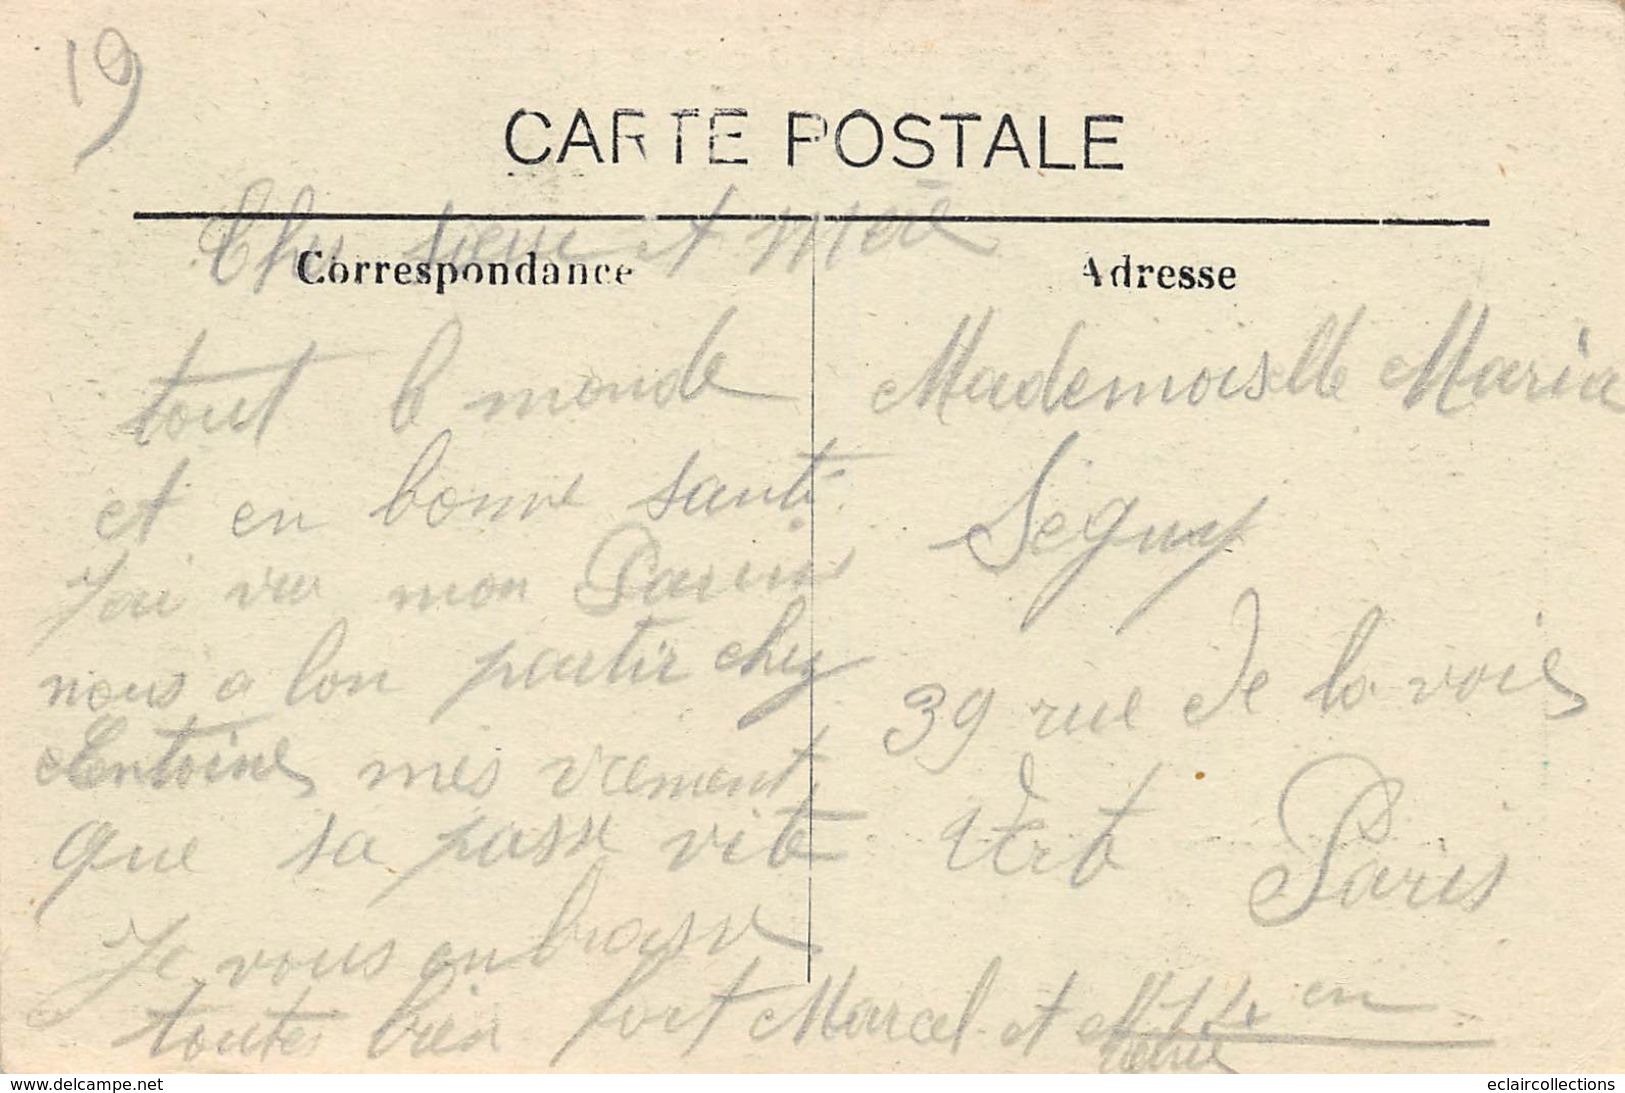 19
CARTE POSTALE
Correspondance
Adresse
et mère
tout le monde
et en bonne santé.
J'ai vu mon
nous a lon partir chez
Antoine mes vrement
que sa passe vite
Je vous en brasse
toutes bien fort Marcel et
Mademoiselle Maria
Seguy
39 rue de la voie
Vert Paris
14 en
www.delcampe.net
eclaircollections